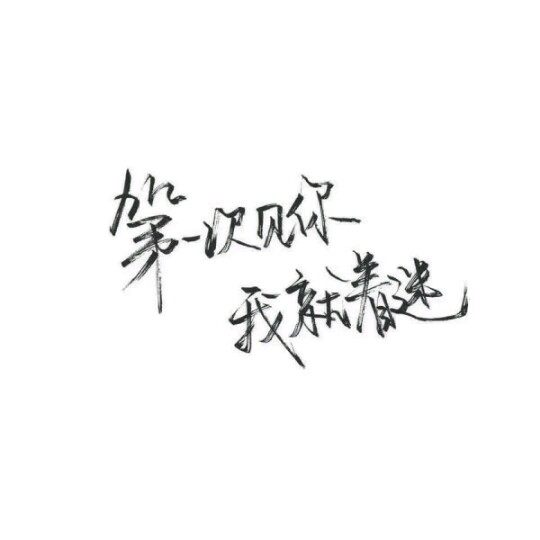 第一次见你
我就着迷